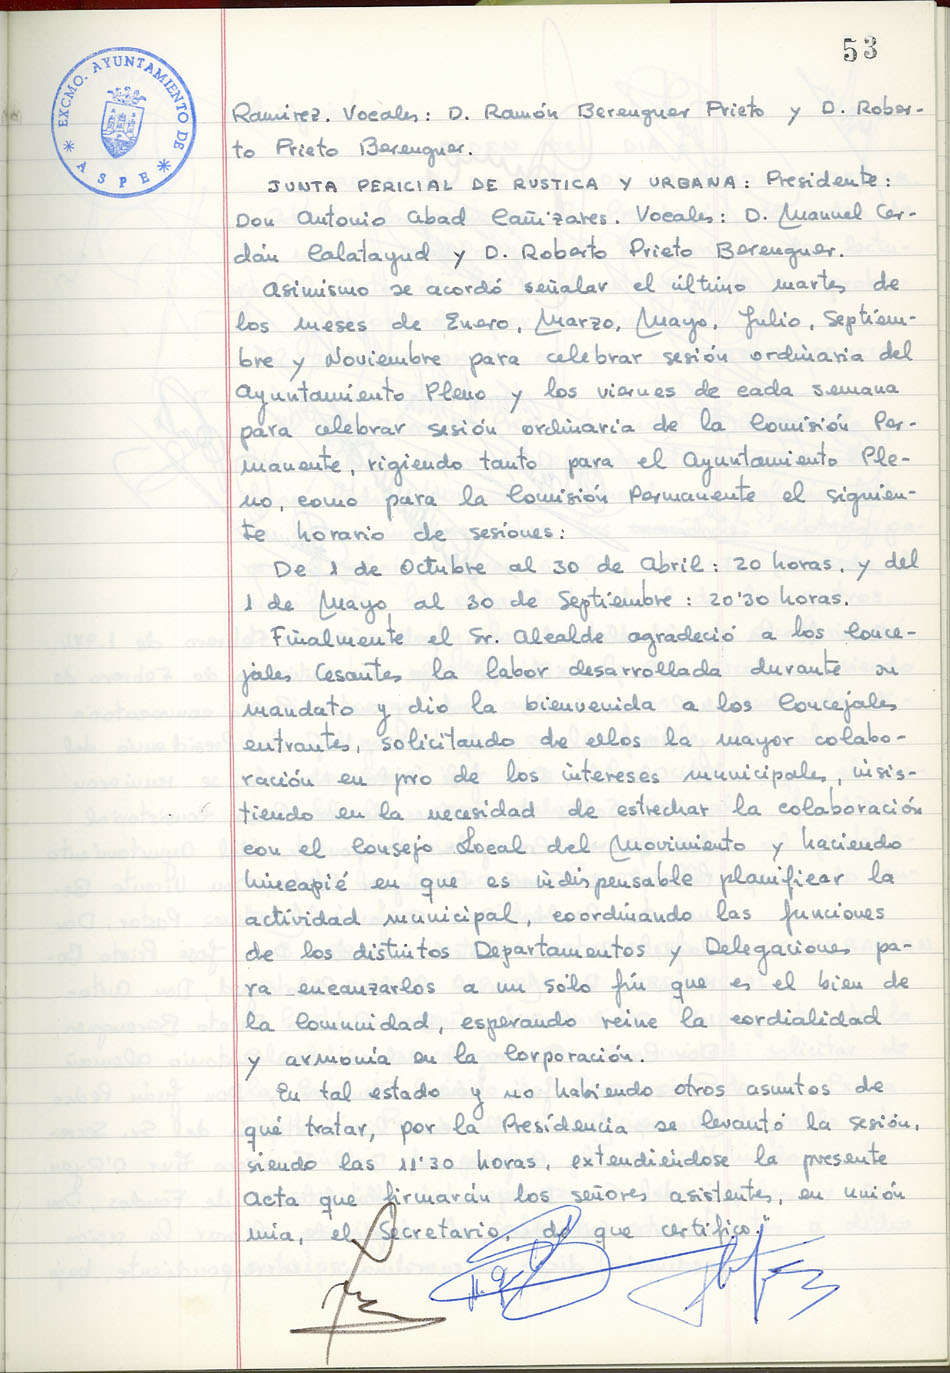 53
EXCMO. AYUNTAMIENTO DE
* ASPE *
Ramirez. Vocales: D. Ramón Berenguer Prieto y D. Rober-
to Prieto Berenguer.
JUNTA PERICIAL DE RUSTICA Y URBANA: Presidente:
Don Antonio Abad Cañizares. Vocales: D. Manuel Cer-
dán Calatayud y D. Roberto Prieto Berenguer.
Asimismo se acordó señalar el último martes de
los meses de Enero, Marzo, Mayo, Julio, Septiem-
bre y Noviembre para celebrar sesión ordinaria del
Ayuntamiento Pleno y los viernes de cada semana
para celebrar sesión ordinaria de la Comisión Per-
manente, rigiendo tanto para el Ayuntamiento Ple-
no, como para la Comisión Permanente el siguien-
te horario de sesiones:
De 1 de Octubre al 30 de Abril: 20 horas, y del
1 de Mayo al 30 de Septiembre: 20'30 horas.
Finalmente el Sr. Alcalde agradeció a los Conce-
jales Cesantes la labor desarrollada durante su
mandato y dio la bienvenida a los Concejales
entrantes, solicitando de ellos la mayor colabo-
ración en pro de los intereses municipales, insis-
tiendo en la necesidad de estrechar la colaboración
con el Consejo Local del Movimiento y haciendo
hincapié en que es indispensable planificar la
actividad municipal, coordinando las funciones
de los distintos Departamentos y Delegaciones pa-
ra encauzarlos a un sólo fín que es el bien de
la Comunidad, esperando reine la cordialidad
y armonía en la Corporación.
En tal estado y no habiendo otros asuntos de
qué tratar, por la Presidencia se levantó la sesión,
siendo las 11'30 horas, extendiéndose la presente
Acta que firmarán los señores asistentes, en unión
mia, el Secretario, de que certifico."